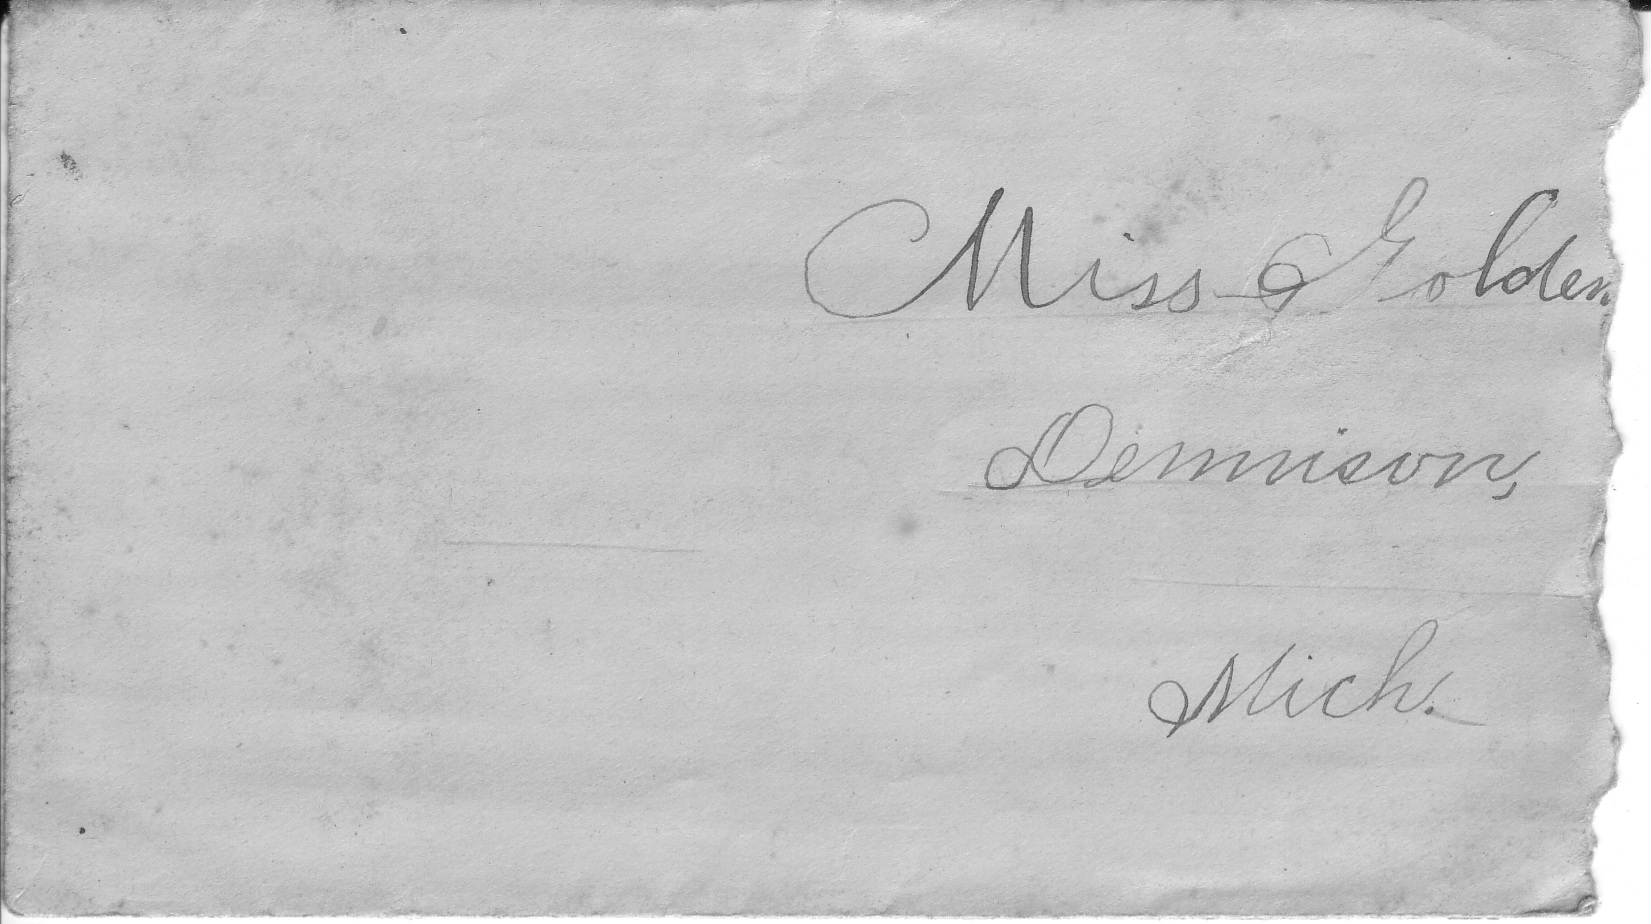 Miss Golden
Dennison,
Mich.